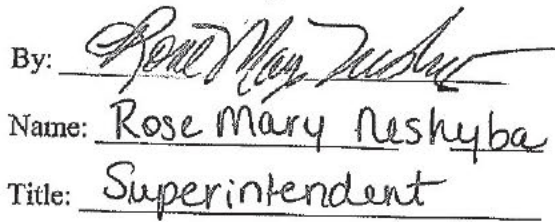 By: Rose Mary
Name: Rose Mary Neshyba
Title: Superintendent